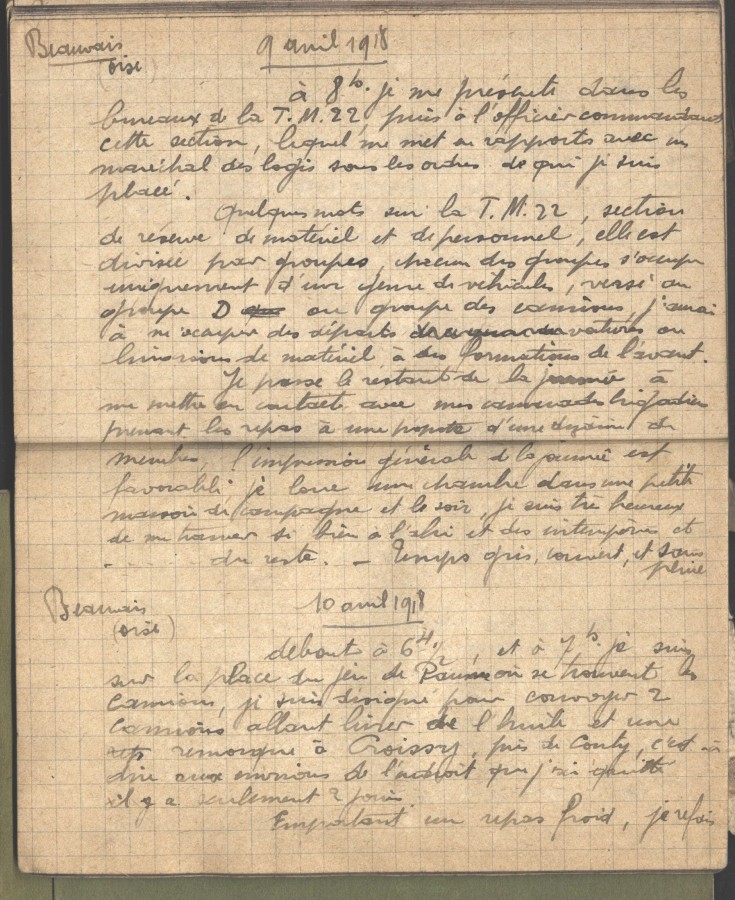 Beauvais
(Oise)
9 avril 1918
à 8h. je me présente dans les
bureaux de la T.M.22, puis à l'officier commandant
cette section, lequel me met en rapports avec un
maréchal des logis sous les ordres de qui je suis
placé.
Quelques mots sur la T.M.22, section
de réserve de matériel et de personnel, elle est
divisée par groupes, chacun des groupes s'occupe
uniquement d'un genre de véhicules, versé au
groupe D ou groupe des camions, j'aurai
à m'occuper des départs voitures ou
livraisons de matériel à des formations de l'avant.
Je passe le restant de la journée à
me mettre en contact avec mes camarades brigadiers
prenant les repas à une popote d'une dizaine de
membres, l'impression générale de la journée est
favorable, je loue une chambre dans une petite
maison de campagne et le soir, je suis très heureux
de me trouver si bien à l'abri et des intempéries et
..... du reste. — Temps gris, couvert, et sans
pluie
Beauvais
(Oise)
10 avril 1918
debout à 6h½, et à 7h. je suis
sur la place du jeu de Paume où se trouvent les
camions, je suis désigné pour convoyer 2
camions allant livrer de l'huile et une
remorque à Croissy, près de Conty, c'est-à-
dire aux environs de l'endroit que j'ai quitté
il y a seulement 2 jours.
Emportant un repas froid, je refais